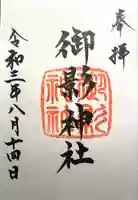 奉拝
御影神社
令和三年八月十四日